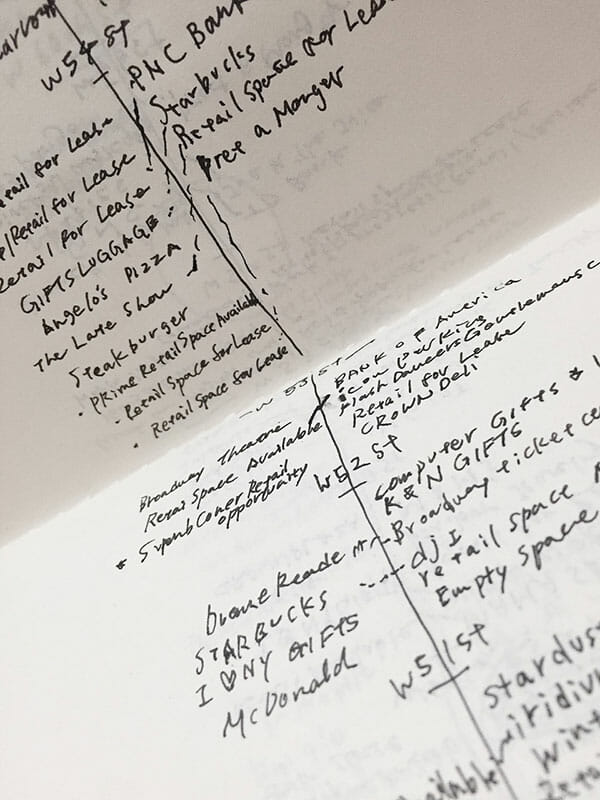 W 54 St
PNC Bank
Starbucks
Retail Space for Lease
Pret a Manger
Retail for Lease
/Retail for Lease
Retail for Lease
GIFTS LUGGAGE
Angelo's PIZZA
The Late Show
Steakburger
· PRime Retail Space Available
· Retail Space for Lease
· Retail Space for Lease
W 53 ST
BANK OF America
icon parking
Flash Dancers Gentlemens C
Retail for Lease
CROWN DELI
Broadway Theatre
Retail Space Available
* Superb Corner Retail
opportunity
W 52 St
Computer Gifts &
K & N GIFTS
Broadway ticket ce
dj I
retail space
Empty Space
Duane Reade
STARBUCKS
I ♡ NY GIFTS
McDonald
W 51 St
Stardus
Wint
Retai
vailable